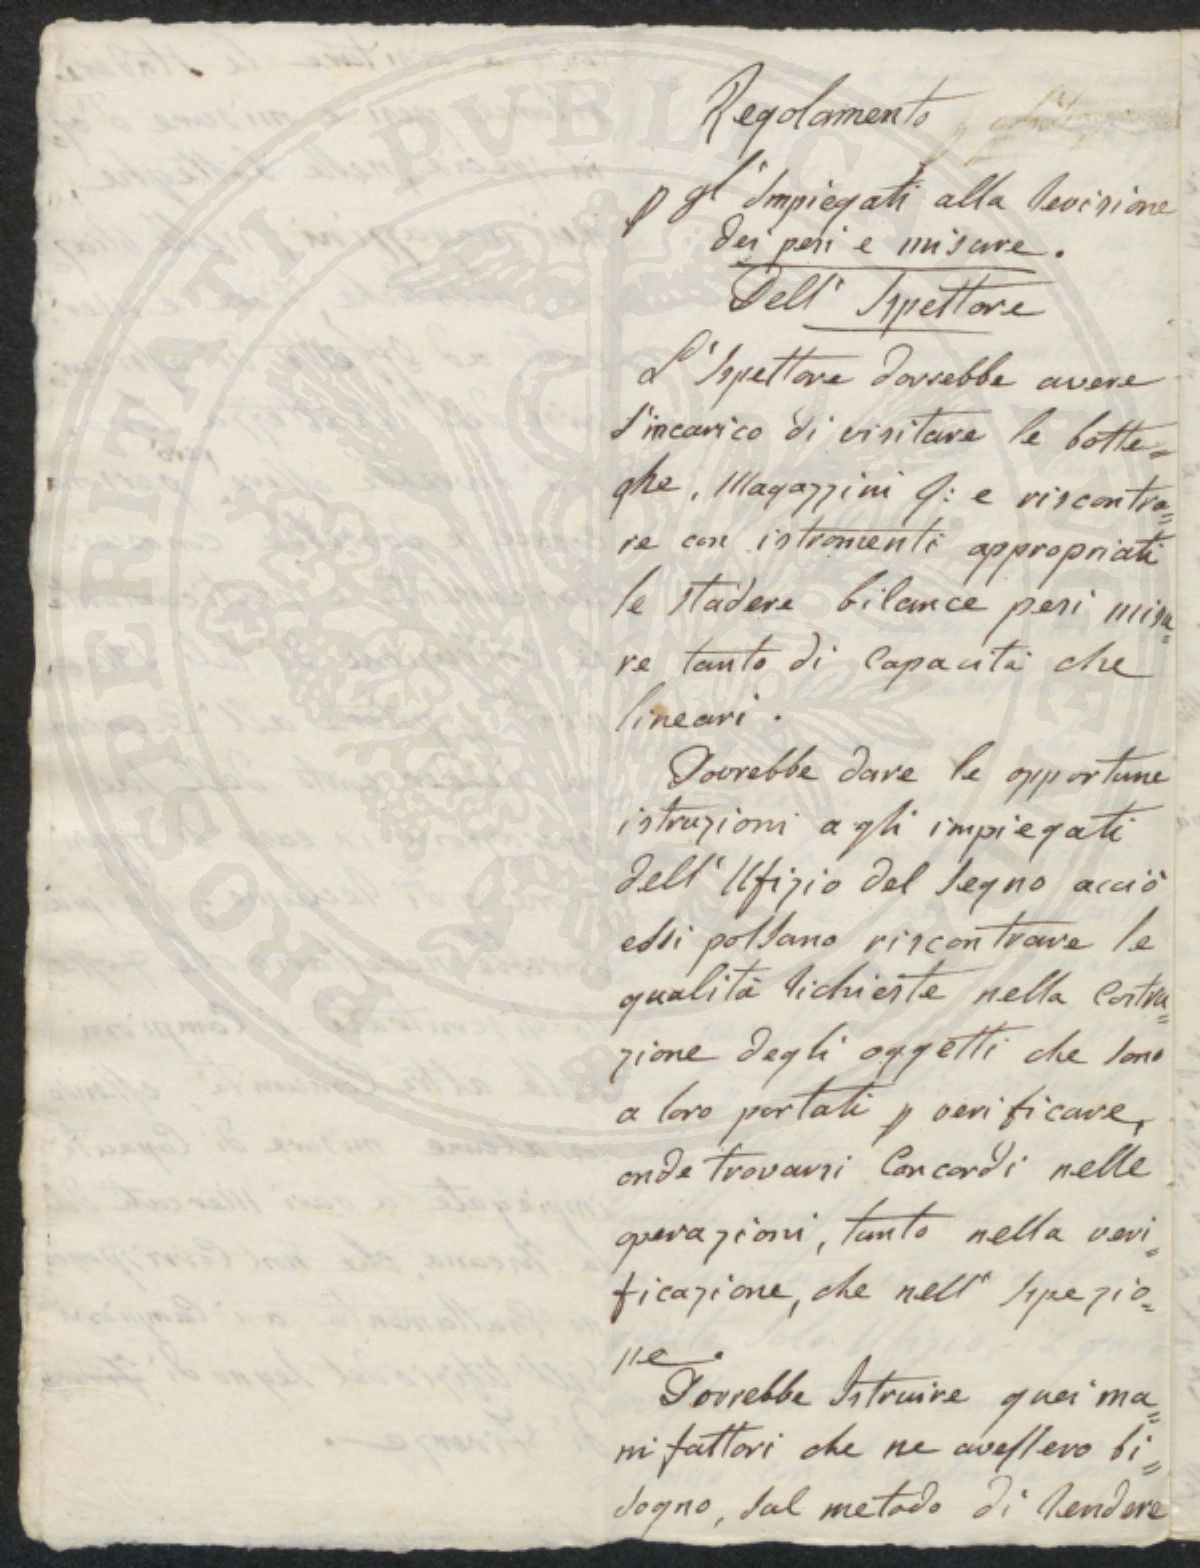 Regolamento
p gl' Impiegati alla Revisione
dei pesi e misure.
Dell' Ispettore
L'Ispettore dovrebbe avere
l'incarico di visitare le botte=
ghe, Magazzini &: e riscontra=
re con istromenti appropriati
le stadere bilance pesi misu=
re tanto di Capacità che
lineari.
Dovrebbe dare le opportune
istruzioni agli impiegati
dell' Ufizio del Segno acciò
essi possano riscontrare le
qualità richieste nella Costru=
zione degli oggetti che sono
a loro portati p verificare,
onde trovarsi Concordi nelle
operazioni, tanto nella veri=
ficazione, che nell' Ispezio=
ne.
Dovrebbe Istruire quei ma=
nifattori che ne avessero bi=
sogno, sul metodo di rendere
PROSPERITATI PVBLICAE